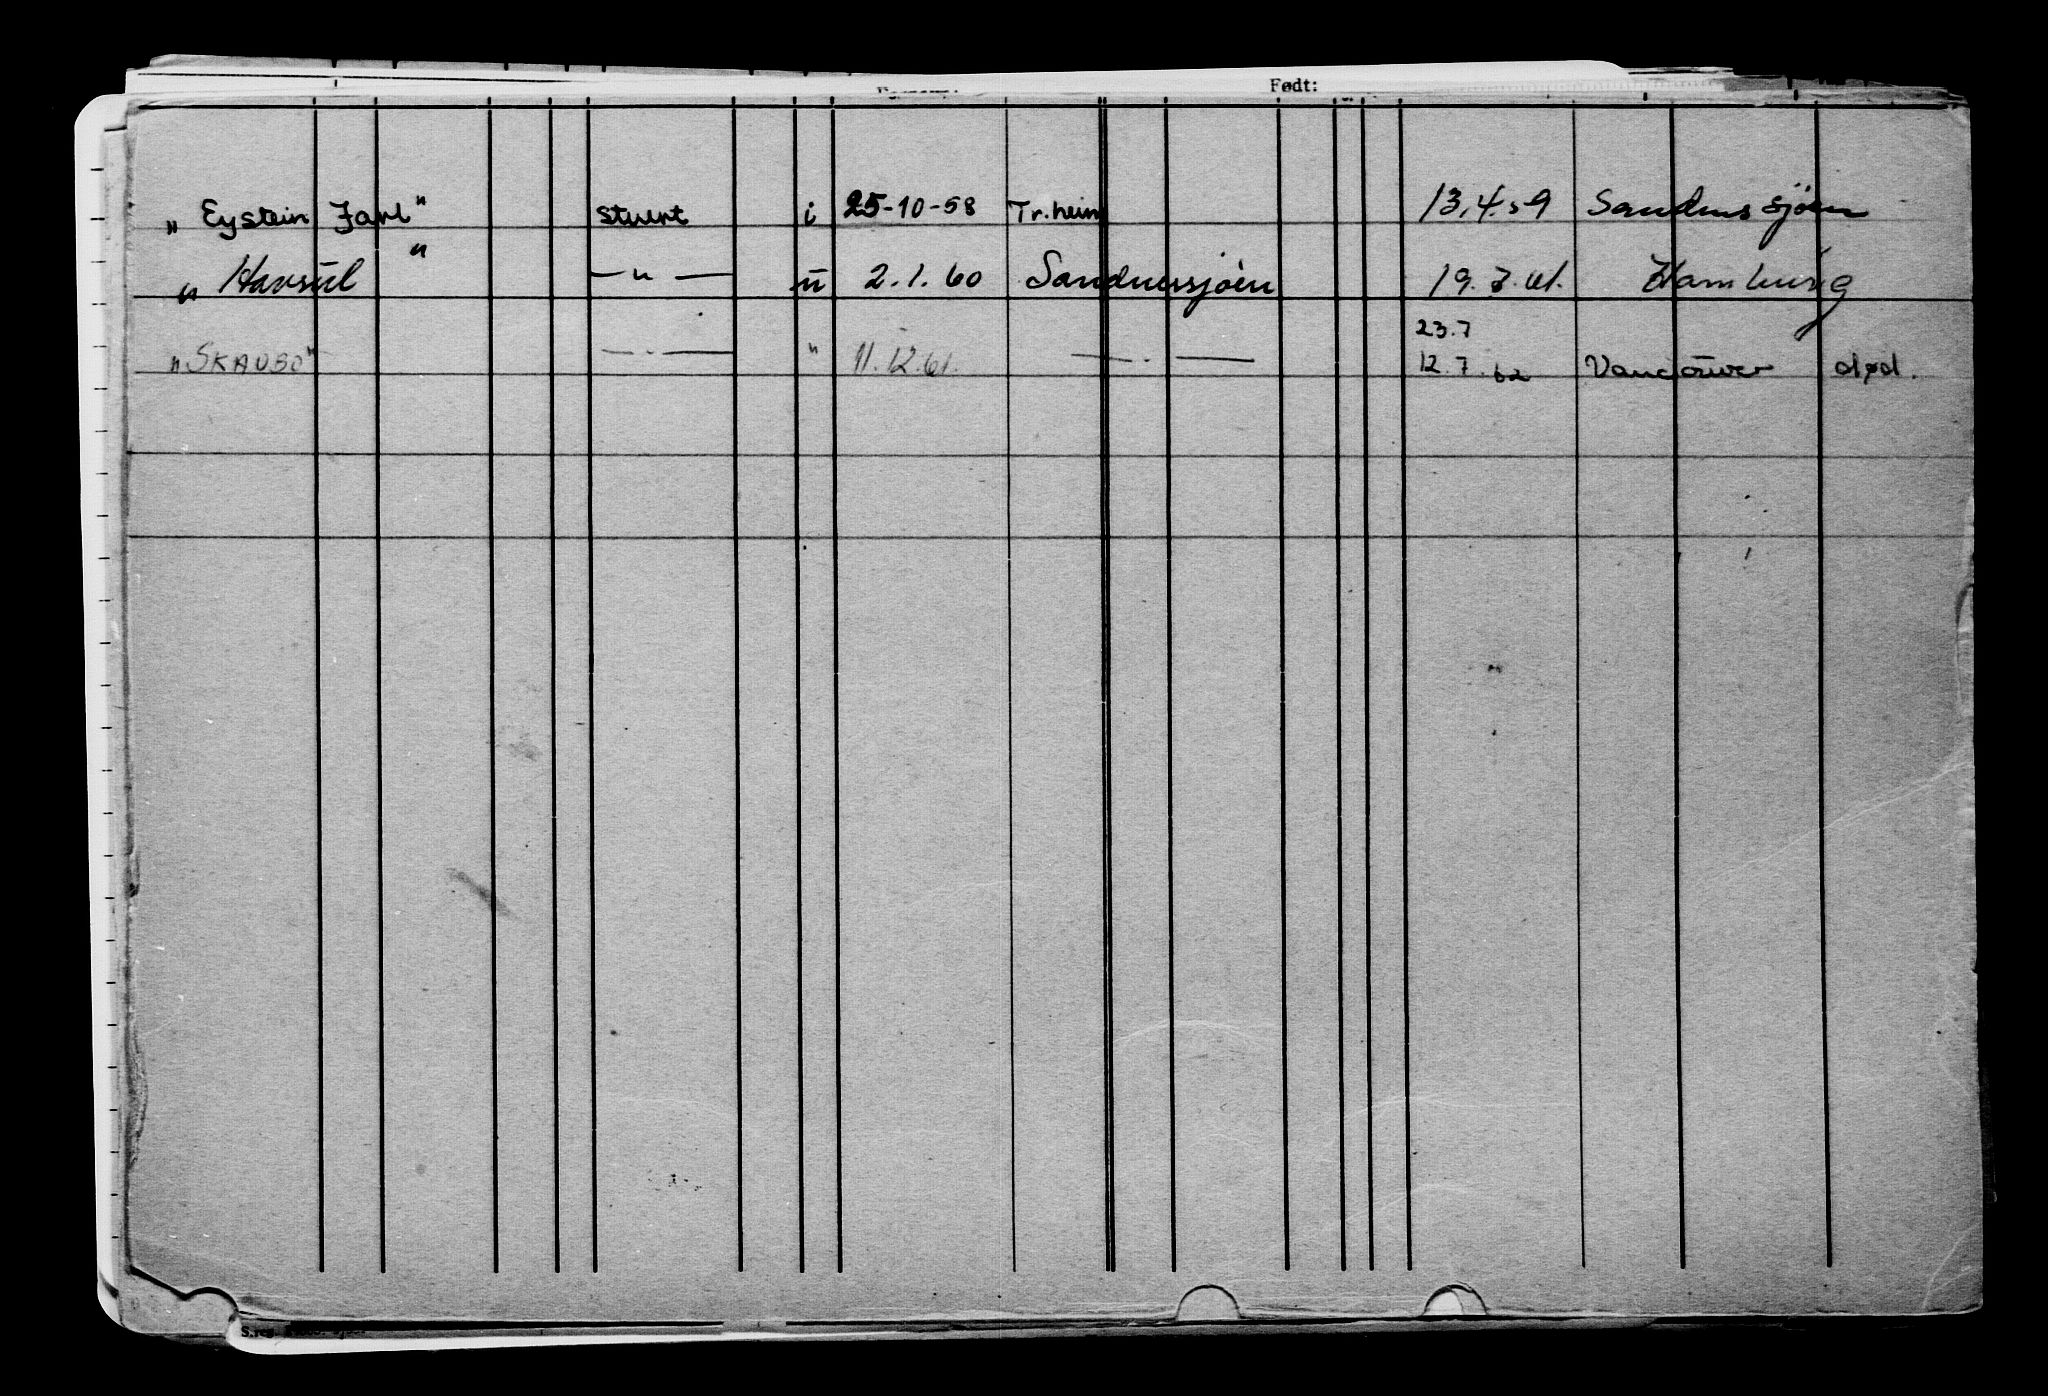 Født:
„ Eystein Jarl" stuert i 25-10-58 Tr.heim 13.4.59 Sandnessjøen
„ Havsul " — " — " 2.1.60 Sandnessjøen 19.7.61. Hamburg
23.7
„SKAUBO" — " — " 11.12.61. — " — 12.7.62 Vancouver død.